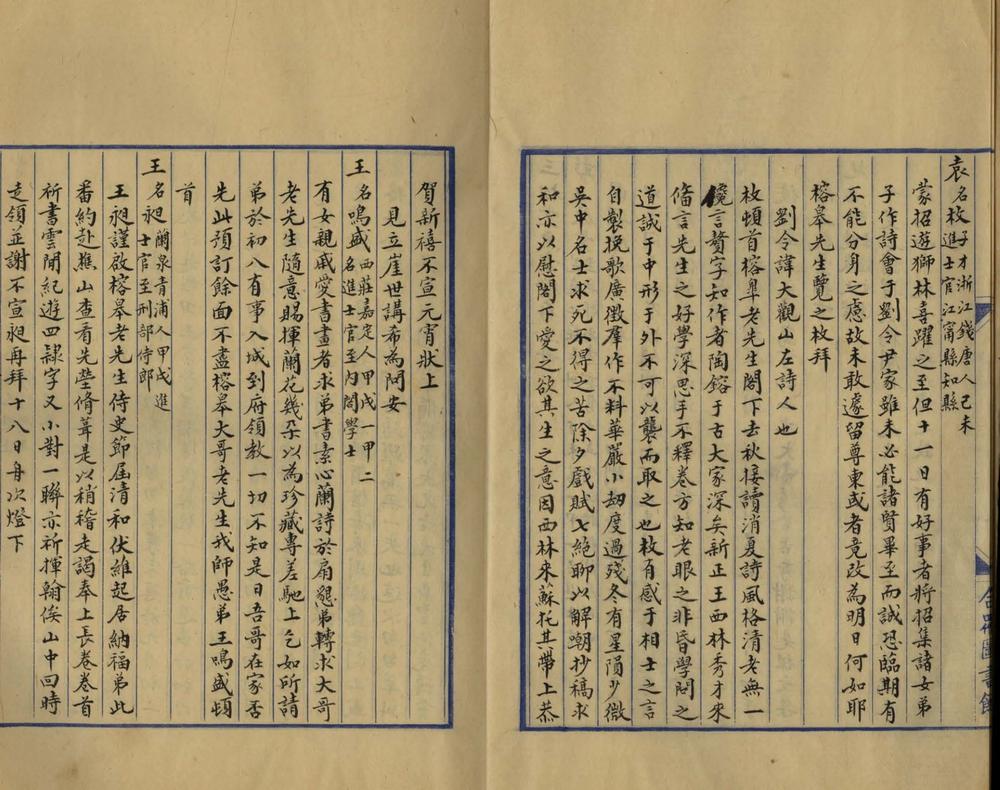 袁名枚子才浙江錢唐人己未
進士官江甯縣知縣
蒙招遊獅林喜躍之至但十一日有好事者將招集諸女弟
子作詩會于劉令尹家雖未必能諸賢畢至而誠恐臨期有
不能分身之慮故未敢遽留尊柬或者竟改為明日何如耶
榕皋先生覽之枚拜
劉令諱大觀山左詩人也
枚頓首榕皋老先生閣下去秋接讀消夏詩風格清老無一
儳言贅字知作者陶鎔于古大家深矣新正王西林秀才來
備言先生之好學深思手不釋卷方知老眼之非昏學問之
道誠于中形于外不可以襲而取之也枚有感于相士之言
自製挽歌廣徵羣作不料華嚴小劫度過殘冬有星隕少微
吳中名士求死不得之苦除夕戲賦七絕聊以解嘲抄稿求
和亦以慰閣下愛之欲其生之意因西林來蘇托其帶上恭
賀新禧不宣元宵狀上
見立崖世講希為問安
王名鳴盛西莊嘉定人甲戌一甲二
名進士官至內閣學士
有女親戚愛書畫者求弟書素心蘭詩於扇懇弟轉求大哥
老先生隨意賜揮蘭花幾朵以為珍藏專差馳上乞如所請
弟於初八有事入城到府領教一切不知是日吾哥在家否
先此預訂餘面不盡榕皋大哥老先生我師愚弟王鳴盛頓
首
王名昶蘭泉青浦人甲戌進
士官至刑部侍郎
王昶謹啟榕皋老先生侍史節屆清和伏維起居納福弟此
番約赴樵山查看先塋脩葺是以稍稽走謁奉上長卷卷首
祈書雲間紀遊四隸字又小對一聯亦祈揮翰俟山中回時
走領並謝不宣昶再拜十八日舟次燈下